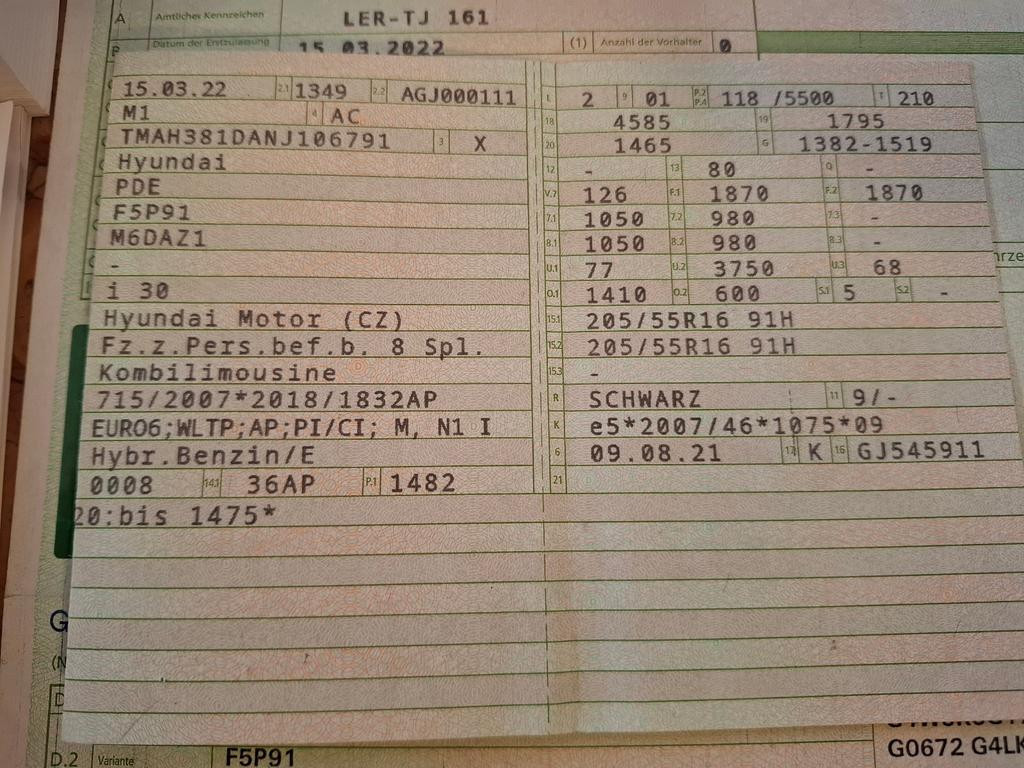 A Amtliches Kennzeichen LER-TJ 161
Datum der Erstzulassung 15.03.2022 (1) Anzahl der Vorhalter 0
15.03.22 2.1 1349 2.2 AGJ000111 L 2 9 01 P.2 P.4 118 /5500 T 210
M1 4 AC 18 4585 19 1795
TMAH381DANJ106791 3 X 20 1465 G 1382-1519
Hyundai 12 - 13 80 Q -
PDE V.7 126 F.1 1870 F.2 1870
F5P91 7.1 1050 7.2 980 7.3 -
M6DAZ1 8.1 1050 8.2 980 8.3 -
- U.1 77 U.2 3750 U.3 68
i 30 O.1 1410 O.2 600 S.1 5 S.2 -
Hyundai Motor (CZ) 15.1 205/55R16 91H
Fz.z.Pers.bef.b. 8 Spl. 15.2 205/55R16 91H
Kombilimousine 15.3 -
715/2007*2018/1832AP R SCHWARZ 11 9/-
EURO6;WLTP;AP;PI/CI; M, N1 I K e5*2007/46*1075*09
Hybr.Benzin/E 6 09.08.21 17 K 16 GJ545911
0008 14.1 36AP P.1 1482 21
20:bis 1475*
D.2 Variante F5P91 G0672 G4LK